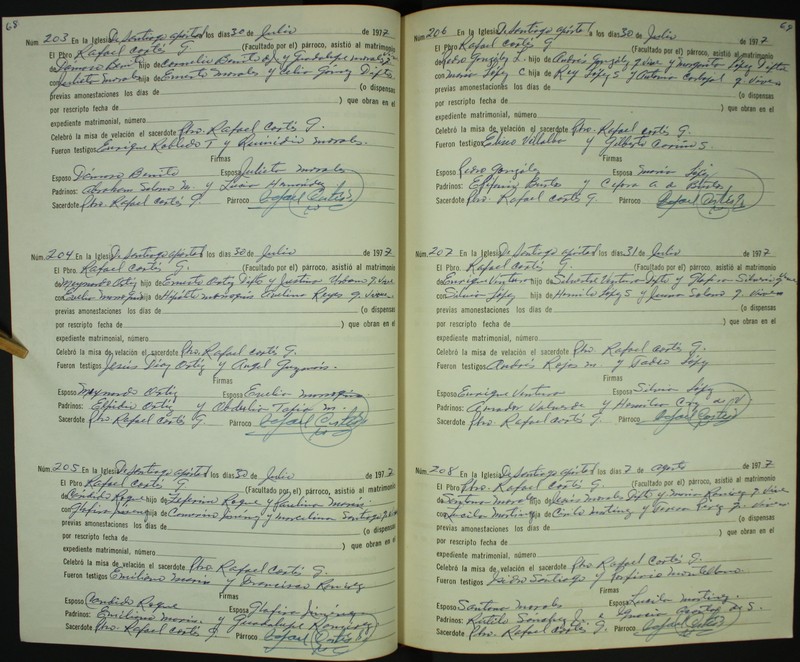 68
Núm. 203 En la Iglesia De Santiago Apóstol los días 30 de Julio de 1977
El Pbro. Rafael Cortés G. (Facultado por el) párroco, asistió al matrimonio
de Dámaso Benito hijo de Cornelio Benito y Guadalupe
con Julieta Morales hija de Ernesto Morales y Celia Difta
previas amonestaciones los días de (o dispensas
por rescripto fecha de ) que obran en el
expediente matrimonial, número
Celebró la misa de velación el sacerdote Pbro. Rafael Cortés G.
Fueron testigos Enrique Robledo T y Remidio Morales.
Firmas
Esposo Dámaso Benito Esposa Julieta Morales
Padrinos: Abraham M. y Hernández
Sacerdote Pbro. Rafael Cortés G. Párroco Rafael Cortés G.
Núm. 204 En la Iglesia De Santiago Apóstol los días 30 de Julio de 1977
El Pbro. Rafael Cortés G. (Facultado por el) párroco, asistió al matrimonio
de Ortiz hijo de Ernesto Ortiz Difto y Justina Urbano q. vive
con Evelia hija de y Evelina Reyes q. viven
previas amonestaciones los días de (o dispensas
por rescripto fecha de ) que obran en el
expediente matrimonial, número
Celebró la misa de velación el sacerdote Pbro. Rafael Cortés G.
Fueron testigos Jesús Díaz Ortiz y Angel Guzmán.
Firmas
Esposo Ortiz Esposa Evelia
Padrinos: Elpidio Ortiz y Obdulia Tapia M.
Sacerdote Pbro. Rafael Cortés G Párroco Rafael Cortés G
Núm. 205 En la Iglesia De Santiago Apóstol los días 30 de Julio de 1977
El Pbro. Rafael Cortés G. (Facultado por el) párroco, asistió al matrimonio
de Cándido Roque hijo de Zeferino Roque y Paulina Morán
con Glafira hija de y Marcelina Santiago
previas amonestaciones los días de (o dispensas
por rescripto fecha de ) que obran en el
expediente matrimonial, número
Celebró la misa de velación el sacerdote Pbro. Rafael Cortés G.
Fueron testigos Emiliano Morán y Francisco Ramírez
Firmas
Esposo Cándido Roque Esposa Glafira Jiménez
Padrinos: Emiliano Morán y Guadalupe Ramírez
Sacerdote Pbro. Rafael Cortés G Párroco Rafael Cortés G
Núm. 206 En la Iglesia De Santiago Apóstol a los días 30 de Julio de 1977
El Pbro Rafael Cortés G (Facultado por el) párroco, asistió al matrimonio
de Pedro González L. hijo de Andrés González q. vive y Margarita López Difta
con María López C hija de Rey López S y Antonia Carbajal q. viven
previas amonestaciones los días de (o dispensas
por rescripto fecha de ) que obran en el
expediente matrimonial, número
Celebró la misa de velación el sacerdote Pbro. Rafael Cortés G.
Fueron testigos Eliseo Villalva y Gilberto S
Firmas
Esposo Pedro González Esposa María López
Padrinos: y A. de
Sacerdote Pbro. Rafael Cortés G Párroco Rafael Cortés G
Núm. 207 En la Iglesia De Santiago Apóstol los días 31 de Julio de 1977
El Pbro. Rafael Cortés G. (Facultado por el) párroco, asistió al matrimonio
de Enrique Ventura hijo de Silvestre Ventura Difto y Glafira
con Silvia López hija de López S y Salomé q. viven
previas amonestaciones los días de (o dispensas
por rescripto fecha de ) que obran en el
expediente matrimonial, número
Celebró la misa de velación el sacerdote Pbro Rafael Cortés G.
Fueron testigos Andrés Rojas M. y Tadeo López
Firmas
Esposo Enrique Ventura Esposa Silvia López
Padrinos: Amador Valverde y Cruz de V.
Sacerdote Pbro. Rafael Cortés G. Párroco Rafael Cortés G
Núm. 208 En la Iglesia De Santiago Apóstol los días 7 de agosto de 1977
El Pbro. Rafael Cortés G. (Facultado por el) párroco, asistió al matrimonio
de Santana Morales hijo de Jesús Morales Difto y María Ramírez q. Vive
con Lucila Martínez hija de Cirilo Martínez y q. viven
previas amonestaciones los días de (o dispensas
por rescripto fecha de ) que obran en el
expediente matrimonial, número
Celebró la misa de velación el sacerdote Pbro. Rafael Cortés G.
Fueron testigos Isidro Santiago y Porfirio
Firmas
Esposo Santana Morales Esposa Lucila Martínez
Padrinos: Rutilo Sánchez y María de S.
Sacerdote Pbro. Rafael Cortés G. Párroco Rafael Cortés